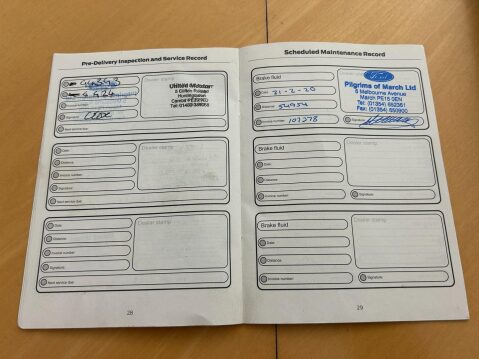 Pre-Delivery Inspection and Service Record
Dealer stamp
Invoice number
Signature
Next service due
United Motors
Huntingdon
Date
Distance
Invoice number
Signature
Next service due
Dealer stamp
Date
Distance
Invoice number
Signature
Next service due
Dealer stamp
28
Scheduled Maintenance Record
Brake fluid
Date 21-2-20
Distance 54954
Invoice number 107278
Dealer stamp
Ford
Pilgrims of March Ltd
5 Melbourne Avenue
March PE15 0EN
Tel: (01354) 652361
Fax: (01354) 650900
Signature
Brake fluid
Date
Distance
Invoice number
Dealer stamp
Signature
Brake fluid
Date
Distance
Invoice number
Dealer stamp
Signature
29